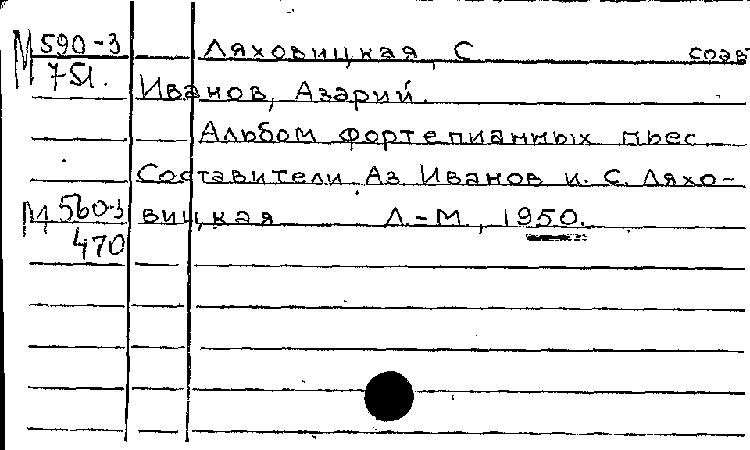 М 590-3 Ляховицкая, С соав
751. Иванов, Азарий.
Альбом фортепианных пьес
Составители Аз. Иванов и. С. Ляхо-
М 560-3 вицкая Л.-М., 1950.
470